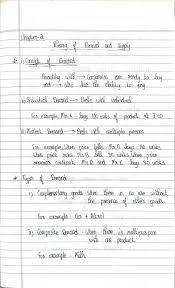 Chapter-2
Theory of Demand and Supply
* i) Concept of Demand:
Quantity which → Consumers are ready to buy
and → also has the ability to pay
ii) Individual Demand → Deals with individual
For example, Mr. A buys 100 units of product at ₹ 50
iii) Market Demand → Deals with multiple persons
For example, When price falls Mr. B buys units
When price Mr. B units. When price
Mr. B and buys 90 units.
* Types of Demand
i) Complementary goods When there is no use without
the presence of other goods.
For example: Car + Petrol
ii) Composite Demand - When there is multipurpose
with one product.
For example - Milk